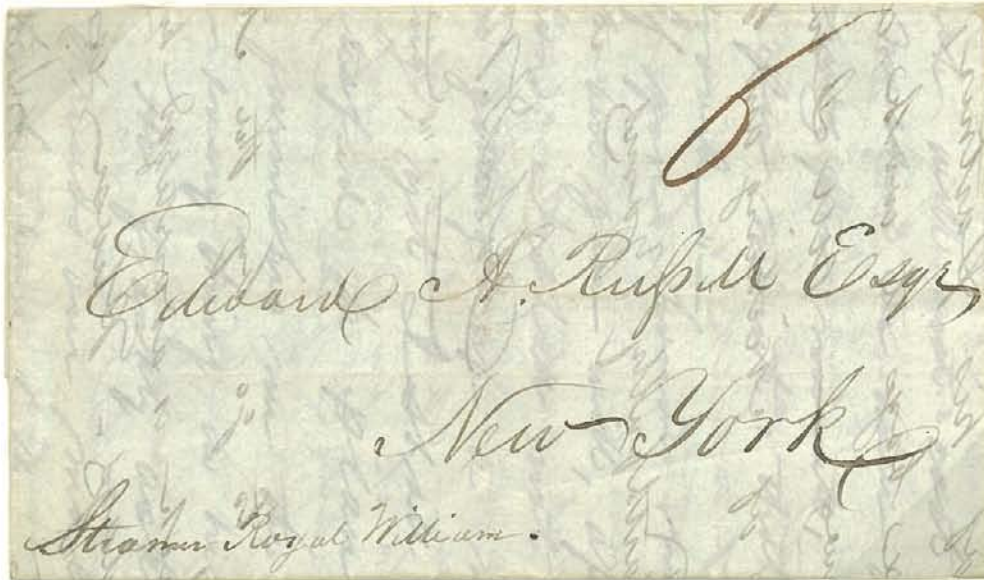 6
Edward A. Russell Esqr
New York
Steamer Royal William.